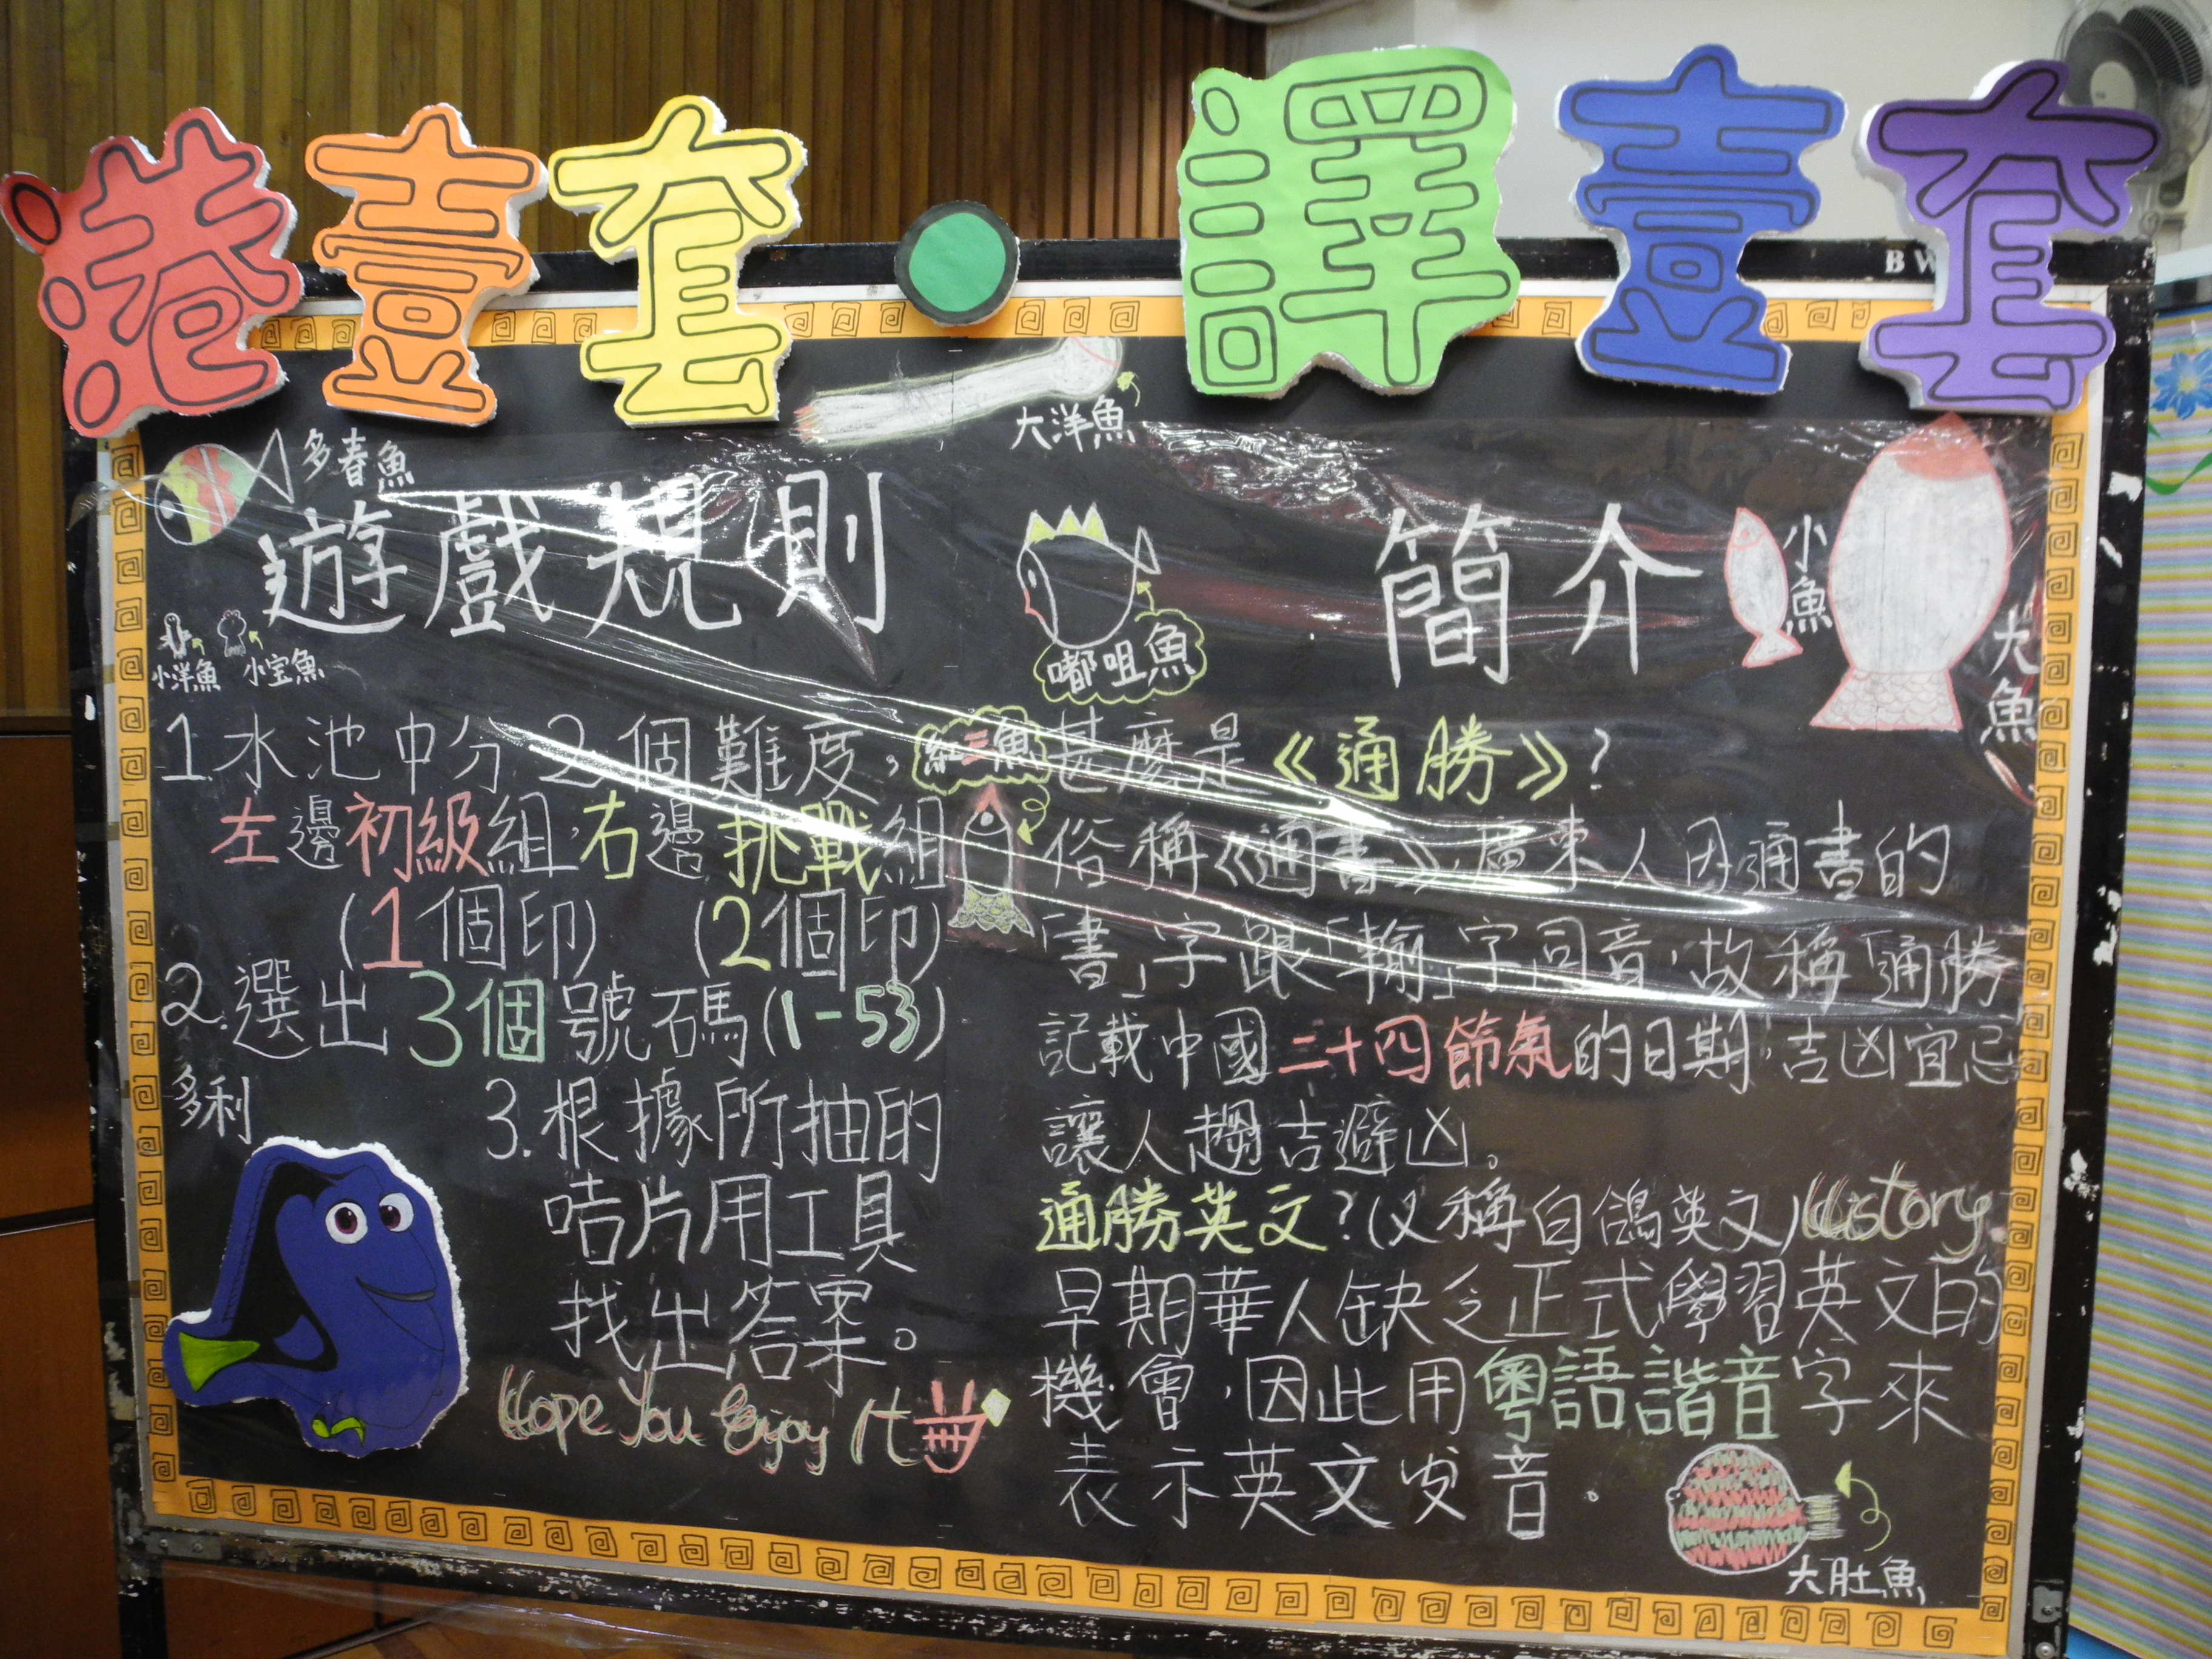 港壹套・譯壹套
BW
大洋魚
多春魚
遊戲規則
小洋魚
小宝魚
1.水池中分2個難度,
左邊初級組,右邊挑戰組
(1個印) (2個印)
2.選出3個號碼(1-53)
多利
3.根據所抽的
咭片用工具
找出答案。
Hope You Enjoy It
嘟咀魚
紅三魚
簡介
小魚
大魚
甚麼是《通勝》?
俗稱《通書》,廣東人因通書的
「書」字跟「輸」字同音,故稱「通勝
記載中國二十四節氣的日期,吉凶宜忌
讓人趨吉避凶。
通勝英文?(又稱白鴿英文)History
早期華人缺乏正式學習英文的
機會,因此用粵語諧音字來
表示英文发音.
大肚魚